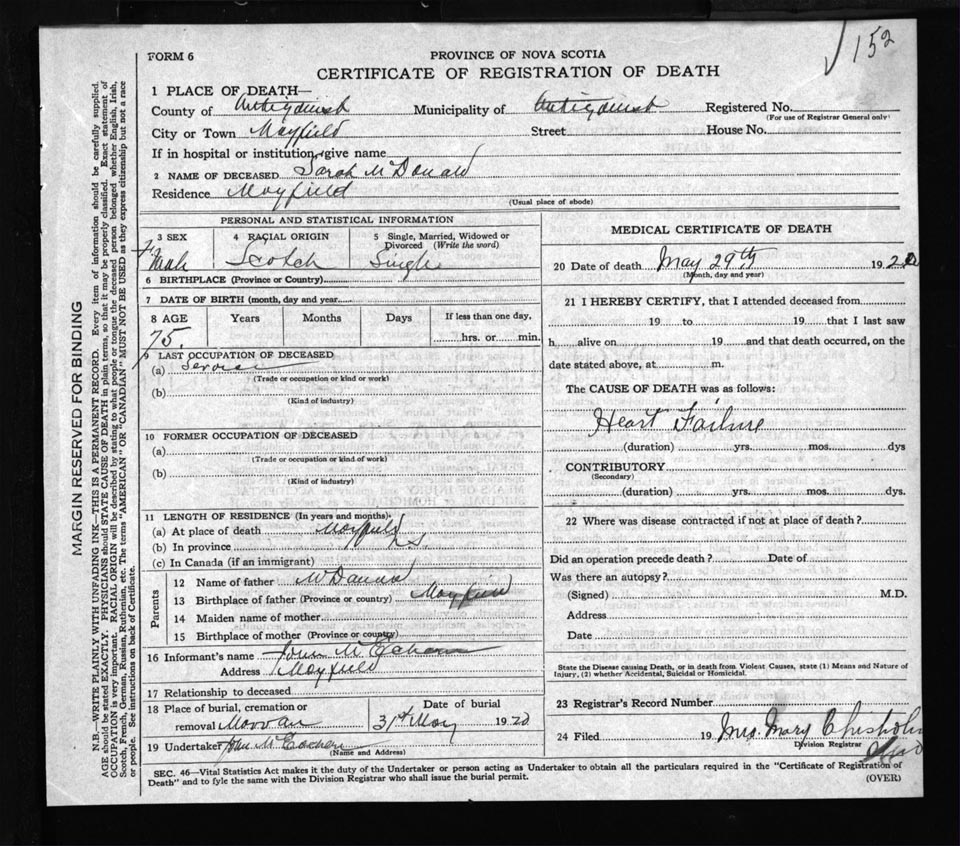 152
FORM 6
PROVINCE OF NOVA SCOTIA
CERTIFICATE OF REGISTRATION OF DEATH
1 PLACE OF DEATH—
County of Antigonish Municipality of Antigonish Registered No.
(For use of Registrar General only)
City or Town Mayfield Street House No.
If in hospital or institution, give name
2 NAME OF DECEASED Sarah McDonald
Residence Mayfield
(Usual place of abode)
PERSONAL AND STATISTICAL INFORMATION
3 SEX 4 RACIAL ORIGIN 5 Single, Married, Widowed or Divorced (Write the word)
Female Scotch Single
6 BIRTHPLACE (Province or Country)
7 DATE OF BIRTH (month, day and year)
8 AGE Years Months Days If less than one day,
75. hrs. or min.
9 LAST OCCUPATION OF DECEASED
(a)
(Trade or occupation or kind or work)
(b)
(Kind of industry)
10 FORMER OCCUPATION OF DECEASED
(a)
(Trade or occupation or kind of work)
(b)
(Kind of industry)
11 LENGTH OF RESIDENCE (In years and months)
(a) At place of death Mayfield
(b) In province N.S.
(c) In Canada (if an immigrant)
Parents
12 Name of father McDonald
13 Birthplace of father (Province or country) Mayfield
14 Maiden name of mother
15 Birthplace of mother (Province or country)
16 Informant's name John McEachern
Address Mayfield
17 Relationship to deceased
18 Place of burial, cremation or Date of burial
removal 31st May 1920
19 Undertaker John McEachern
(Name and Address)
MEDICAL CERTIFICATE OF DEATH
20 Date of death May 29th 1920
(Month, day and year)
21 I HEREBY CERTIFY, that I attended deceased from
19 to 19 that I last saw
h alive on 19 and that death occurred, on the
date stated above, at m.
The CAUSE OF DEATH was as follows:
Heart Failure
(duration) yrs. mos. dys
CONTRIBUTORY
(Secondary)
(duration) yrs. mos. dys.
22 Where was disease contracted if not at place of death?
Did an operation precede death? Date of
Was there an autopsy?
(Signed) M.D.
Address
Date
State the Disease causing Death, or in death from Violent Causes, state (1) Means and Nature of
Injury, (2) whether Accidental, Suicidal or Homicidal.
23 Registrar's Record Number
24 Filed 19 Mrs. Mary Chisholm
Division Registrar
SEC. 46—Vital Statistics Act makes it the duty of the Undertaker or person acting as Undertaker to obtain all the particulars required in the "Certificate of Registration of
Death" and to fyle the same with the Division Registrar who shall issue the burial permit.
(OVER)
MARGIN RESERVED FOR BINDING
N.B.—WRITE PLAINLY WITH UNFADING INK—THIS IS A PERMANENT RECORD. Every item of information should be carefully supplied.
AGE should be stated EXACTLY. PHYSICIANS should STATE CAUSE OF DEATH in plain terms, so that it may be properly classified. Exact statement of
OCCUPATION is very important. RACIAL ORIGIN will be described by stating to what people or tongue the deceased person belonged whether English, Irish,
Scotch, French, German, Russian, Ruthenian, etc. The terms "AMERICAN" OR "CANADIAN" MUST NOT BE USED as they express citizenship but not a race
or people. See instructions on back of Certificate.